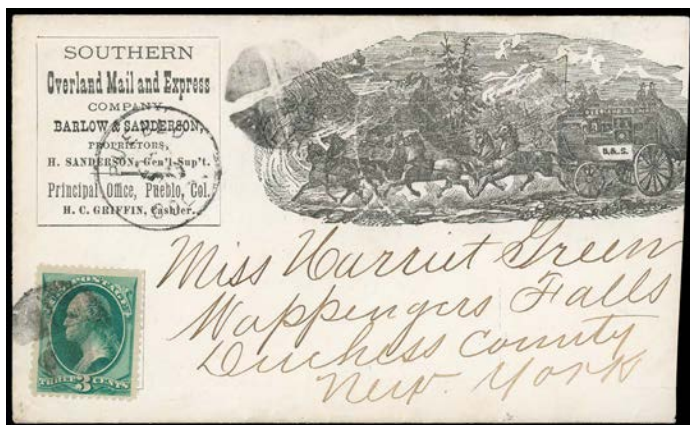 SOUTHERN
Overland Mail and Express
COMPANY,
BARLOW & SANDERSON,
PROPRIETORS,
H. SANDERSON, Gen'l Sup't.
Principal Office, Pueblo, Col.
H. C. GRIFFIN, Cashier.
PUEBLO
COL.
B.& S.
Miss Harriet Green
Wappengers Falls
Duchess County
New York
POSTAGE
THREE 3 CENTS